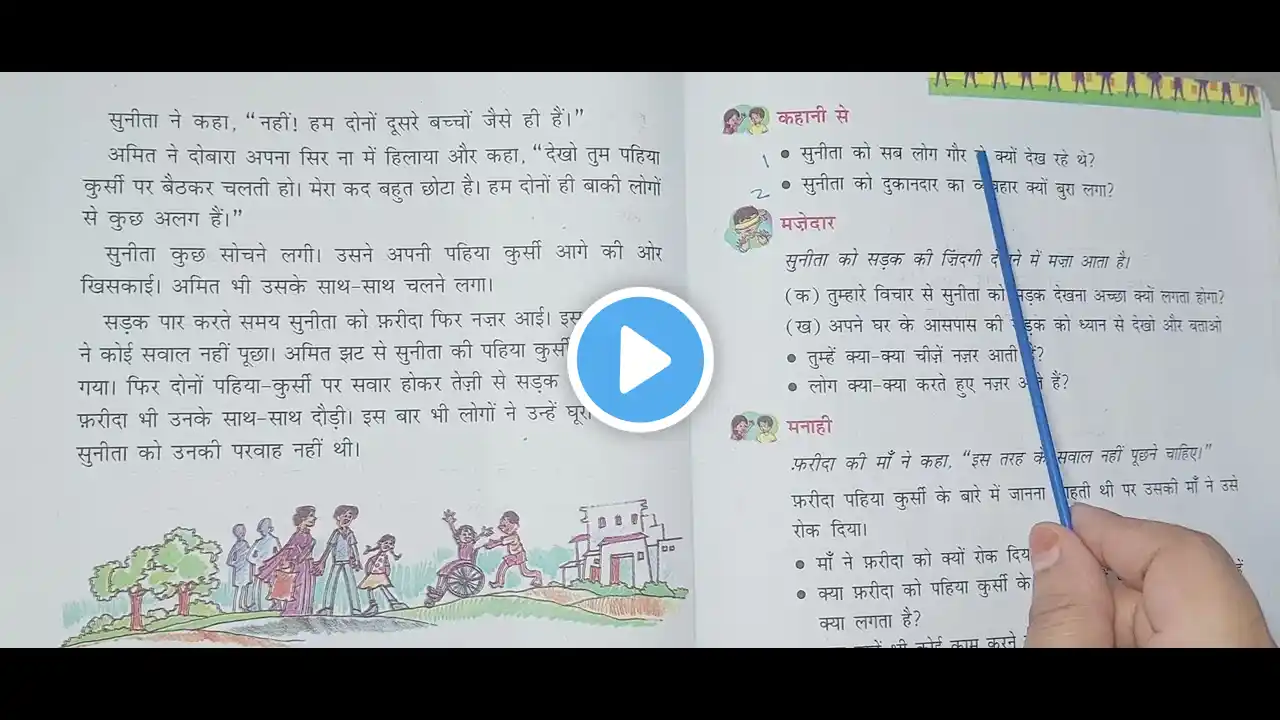 सुनीता ने कहा, “नहीं! हम दोनों दूसरे बच्चों जैसे ही हैं।”
अमित ने दोबारा अपना सिर ना में हिलाया और कहा, “देखो तुम पहिया
कुर्सी पर बैठकर चलती हो। मेरा कद बहुत छोटा है। हम दोनों ही बाकी लोगों
से कुछ अलग हैं।”
सुनीता कुछ सोचने लगी। उसने अपनी पहिया कुर्सी आगे की ओर
खिसकाई। अमित भी उसके साथ-साथ चलने लगा।
सड़क पार करते समय सुनीता को फ़रीदा फिर नज़र आई।
ने कोई सवाल नहीं पूछा। अमित झट से सुनीता की पहिया कुर्सी
गया। फिर दोनों पहिया-कुर्सी पर सवार होकर तेज़ी से सड़क
फ़रीदा भी उनके साथ-साथ दौड़ी। इस बार भी लोगों ने उन्हें
सुनीता को उनकी परवाह नहीं थी।
कहानी से
1 • सुनीता को सब लोग गौर क्यों देख रहे थे?
2 • सुनीता को दुकानदार का क्यों बुरा लगा?
मज़ेदार
सुनीता को सड़क की ज़िंदगी में मज़ा आता है।
(क) तुम्हारे विचार से सुनीता को सड़क देखना अच्छा क्यों लगता होगा?
(ख) अपने घर के आसपास की सड़क को ध्यान से देखो और बताओ
• तुम्हें क्या-क्या चीज़ें नज़र आती हैं?
• लोग क्या-क्या करते हुए नज़र आते हैं?
मनाही
फ़रीदा की माँ ने कहा, “इस तरह के सवाल नहीं पूछने चाहिए।”
फ़रीदा पहिया कुर्सी के बारे में जानना चाहती थी पर उसकी माँ ने उसे
रोक दिया।
• माँ ने फ़रीदा को क्यों रोक
• क्या फ़रीदा को पहिया कुर्सी के
क्या लगता है?